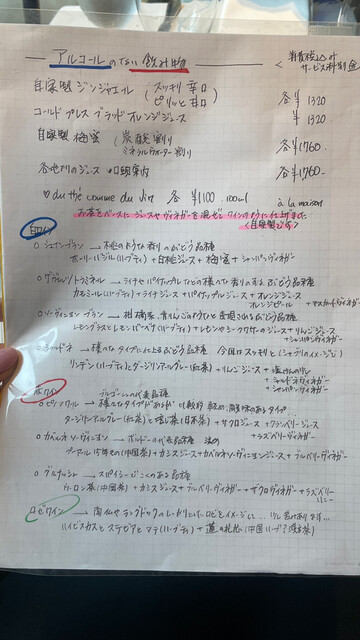 アルコールのない飲み物
消費税込み サービス料別途
自家製 ジンジャエール (スッキリ 辛口 ピリッと 甘口 各¥1320
コールドプレス ブラッドオレンジジュース ¥1320
自家製 梅蜜 (炭酸割り ミネラルウォーター割り 各¥1760
各地方のジュース 口頭案内 各¥1760
♡ du thé comme du vin 各 ¥1100 100ml à la maison
お茶をベースにジュースやヴィネガーを混ぜてワインのように仕上げました
<自家製です>
白ワイン
○シュナンブラン → 桃のような香りのぶどう品種
ホーリーバジル(ハーブティ) + 白桃ジュース + 梅蜜 + シャンパンヴィネガー
○ゲヴュルツトラミネール → ライチやパイナップルなどの様々な香りのするぶどう品種
カモミール(ハーブティ) + ライチジュース + パイナップルジュース + オレンジジュース
オレンジピール + マスカットヴィネガー
○ソーヴィニヨンブラン → 柑橘系、青りんごのようだと表現されるぶどう品種
レモングラスとレモンバーベナ(ハーブティ) + レモンやシークワサーのジュース + りんごジュース
+ シャンパンヴィネガー
○シャルドネ → 様々なタイプに仕上るぶどう品種 今回はスッキリと(シャブリのイメージ)
リンデン(ハーブティ)とダージリンアールグレー(紅茶) + りんごジュース + 塩
+ シャルドネヴィネガー
+ シャンパンヴィネガー
赤ワイン
ブルゴーニュの代表品種
○ピノノワール → 様々なタイプがあるが 比較的 軽め、酸味のあるタイプ
ダージリンアールグレー(紅茶)と 焙じ茶(日本茶) + ザクロジュース + クランベリージュース
+ ラズベリーヴィネガー
○カベルネソーヴィニヨン → ボルドーの代表品種 濃いめ
プーアル(中国茶) + カシスジュース + カベルネソーヴィニヨンジュース + ブルーベリーヴィネガー
○グルナッシュ → スパイシーでこくのある品種
ウーロン茶(中国茶) + カシスジュース + ブルーベリーヴィネガー + ザクロヴィネガー + ラズベリー
ロゼワイン → 南仏やラングドックのしっかりしたロゼをイメージに…
ハイビスカスとステビアとマテ(ハーブティ) + 蓮の花